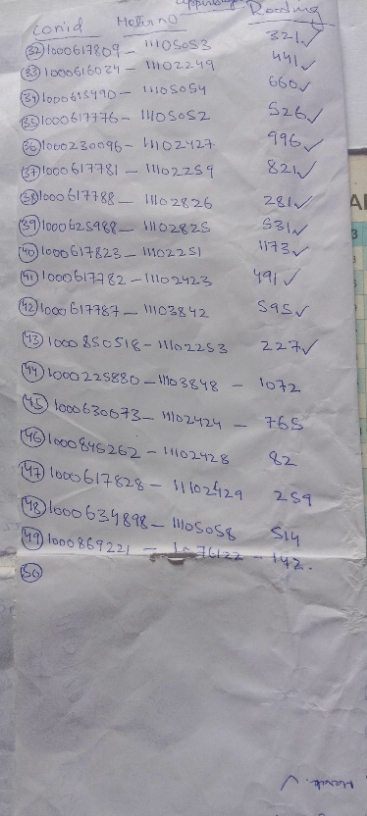 conid Meter no Reading
(32) 1000617809 - 11105053 321 ✓
(33) 1000616024 - 11102249 441 ✓
(34) 1000615490 - 11105054 660 ✓
(35) 1000617776 - 11105052 526 ✓
(36) 1000230096 - 11102427 996 ✓
(37) 1000617781 - 11102259 821 ✓
(38) 1000617788 - 11102826 281 ✓
(39) 1000625988 - 11102825 531 ✓
(40) 1000617823 - 11102251 1173 ✓
(41) 1000617782 - 11102423 491 ✓
(42) 1000617787 - 11103842 595 ✓
(43) 1000850518 - 11102253 227 ✓
(44) 1000225880 - 11103848 - 1072
(45) 1000630073 - 11102424 - 765
(46) 1000845262 - 11102428 82
(47) 1000617828 - 11102429 259
(48) 1000634898 - 11105058 514
(49) 1000869221 - 76122 - 142.
(50)